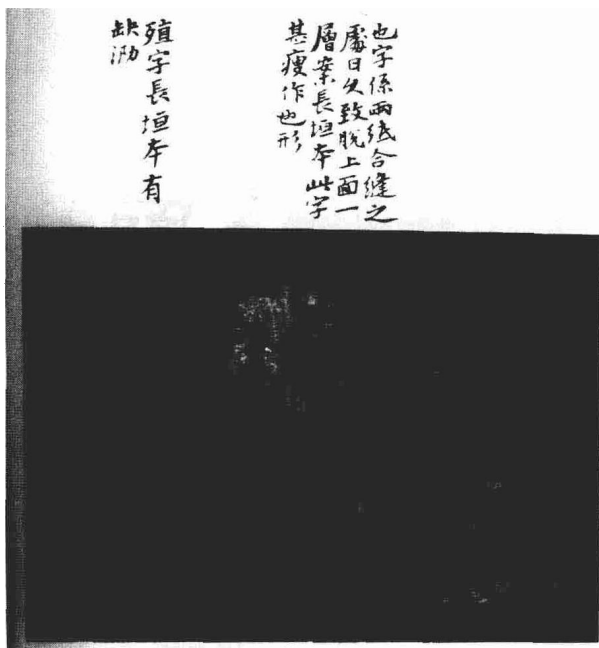 也字係兩紙合縫之
處日久致脫上面一
層案長垣本此字
甚瘦作也形
殖字長垣本有
缺泐